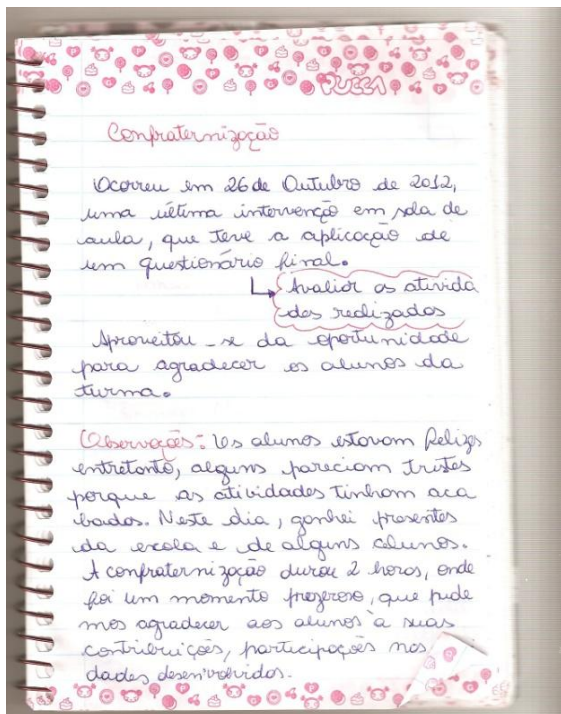 PUCCA
Confraternização
Ocorreu em 26 de Outubro de 2012,
uma última intervenção em sala de
aula, que teve a aplicação de
um questionário final.
Avaliar as ativida
des realizadas
Aproveitou-se da oportunidade
para agradecer os alunos da
turma.
Observações: Os alunos estavam felizes
entretanto, alguns pareciam tristes
porque as atividades tinham aca
bados. Neste dia, ganhei presentes
da escola e de alguns alunos.
A confraternização durou 2 horas, onde
foi um momento prazeroso, que pude
mos agradecer aos alunos à suas
contribuições, participações nas
dades desenvolvidas.